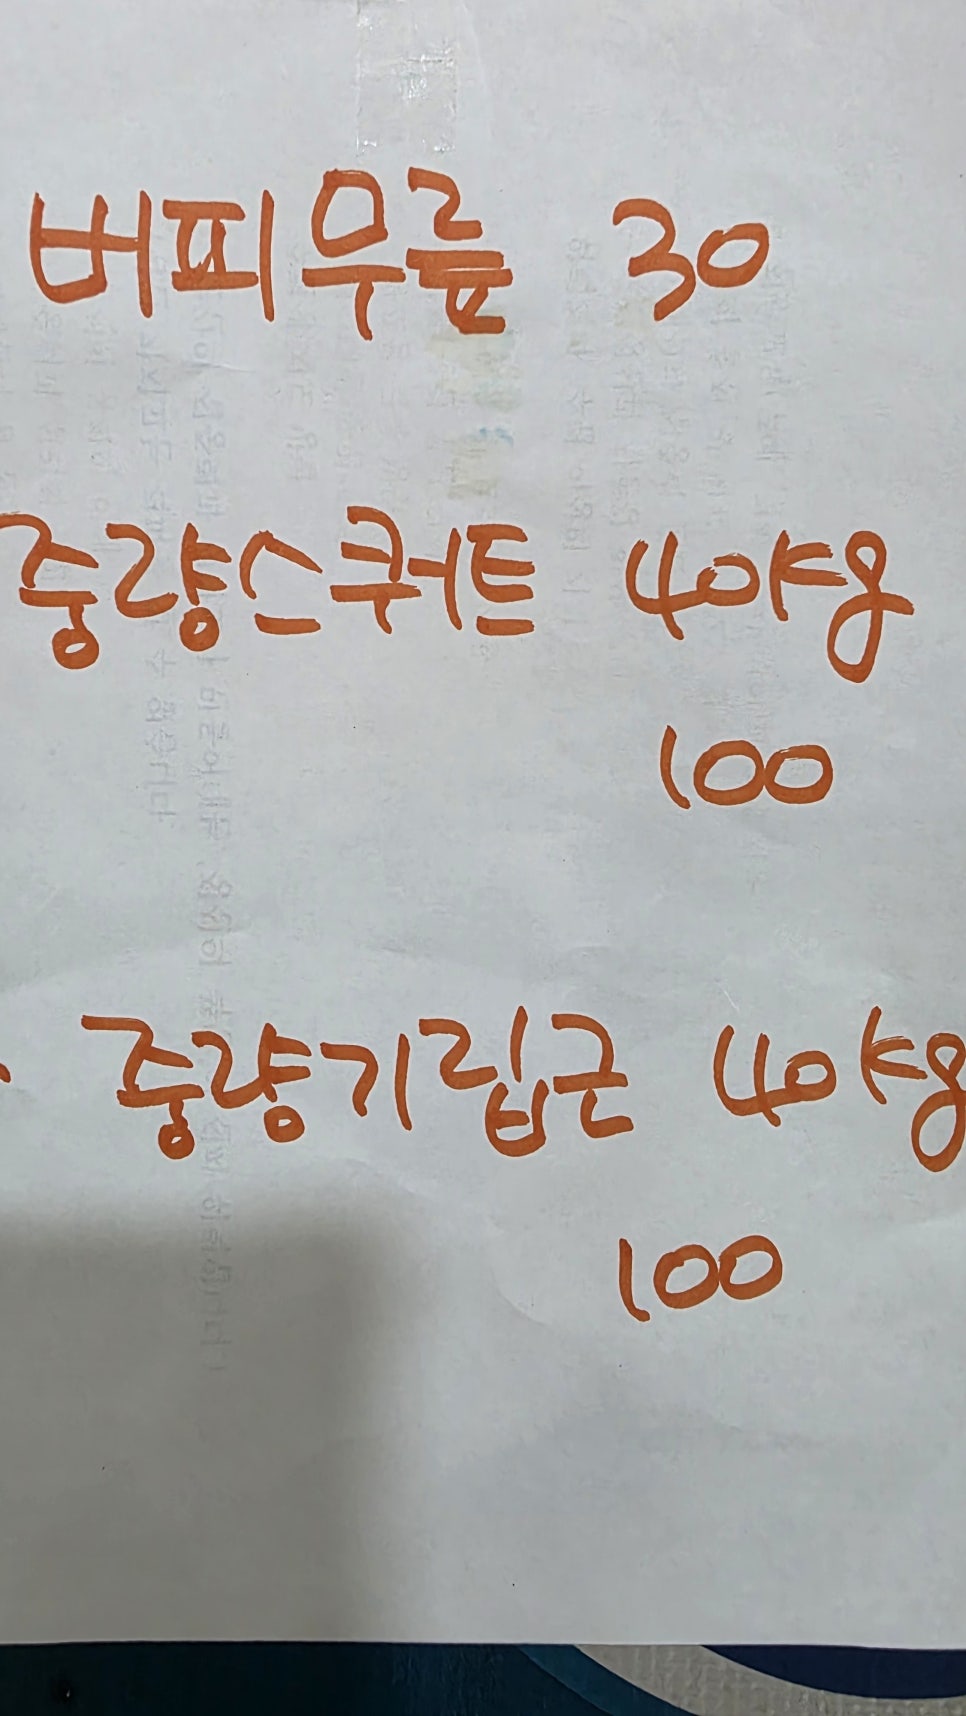 버피무릎 30
중량스쿼트 40kg
100
중량기립근 40kg
100